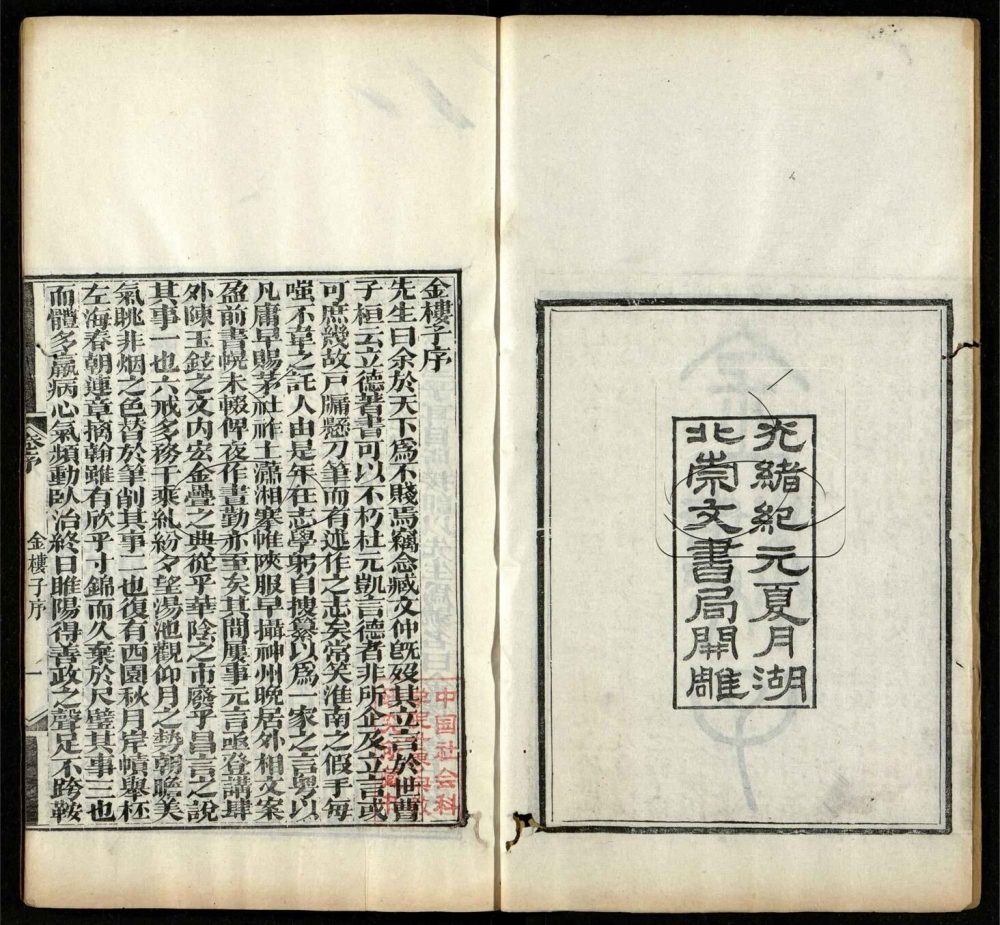 光緒紀元夏月湖
北崇文書局開雕
金樓子序
先生曰余於天下爲不賤焉竊念臧文仲旣歿其立言於世曹
子桓云立德著書可以不朽杜元凱言德者非所企及立言或
可庶幾故戸牖懸刀筆而有述作之志矣常笑淮南之假手每
嗤不韋之託人由是年在志學躬自搜纂以爲一家之言粤以
凡庸早賜茅社祚土瀟湘搴帷陝服早攝神州晚居外相文案
盈前書幌未輟俾夜作晝勤亦至矣其間屢事元言亟登講肆
外陳玉鉉之文內宏金疊之典從乎華陰之市廢乎昌言之說
其事一也六戒多務千乘糺紛夕望湯池觀仰月之勢朝瞻美
氣眺非烟之色替於筆削其事二也復有西園秋月岸幘舉杯
左海春朝連章摛翰雖有欣乎寸錦而久棄於尺璧其事三也
而體多羸病心氣頻動臥治終日睢陽得善政之聲足不跨鞍
序
金樓子序
一
中国社会科